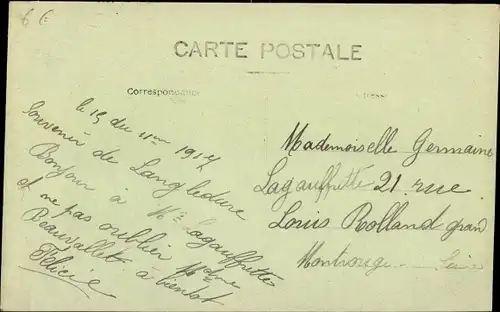 6 c
CARTE POSTALE
Correspondance
le 15 du 11me 1917
Souvenir de Langledure
Bonjour à Mr Lagauffrette
et ne pas oublier Mdme
Beauvallet à bientot
Félicie
Mademoiselle Germaine
Lagauffrette 21 rue
Louis Rolland gran
Montrouge Seine